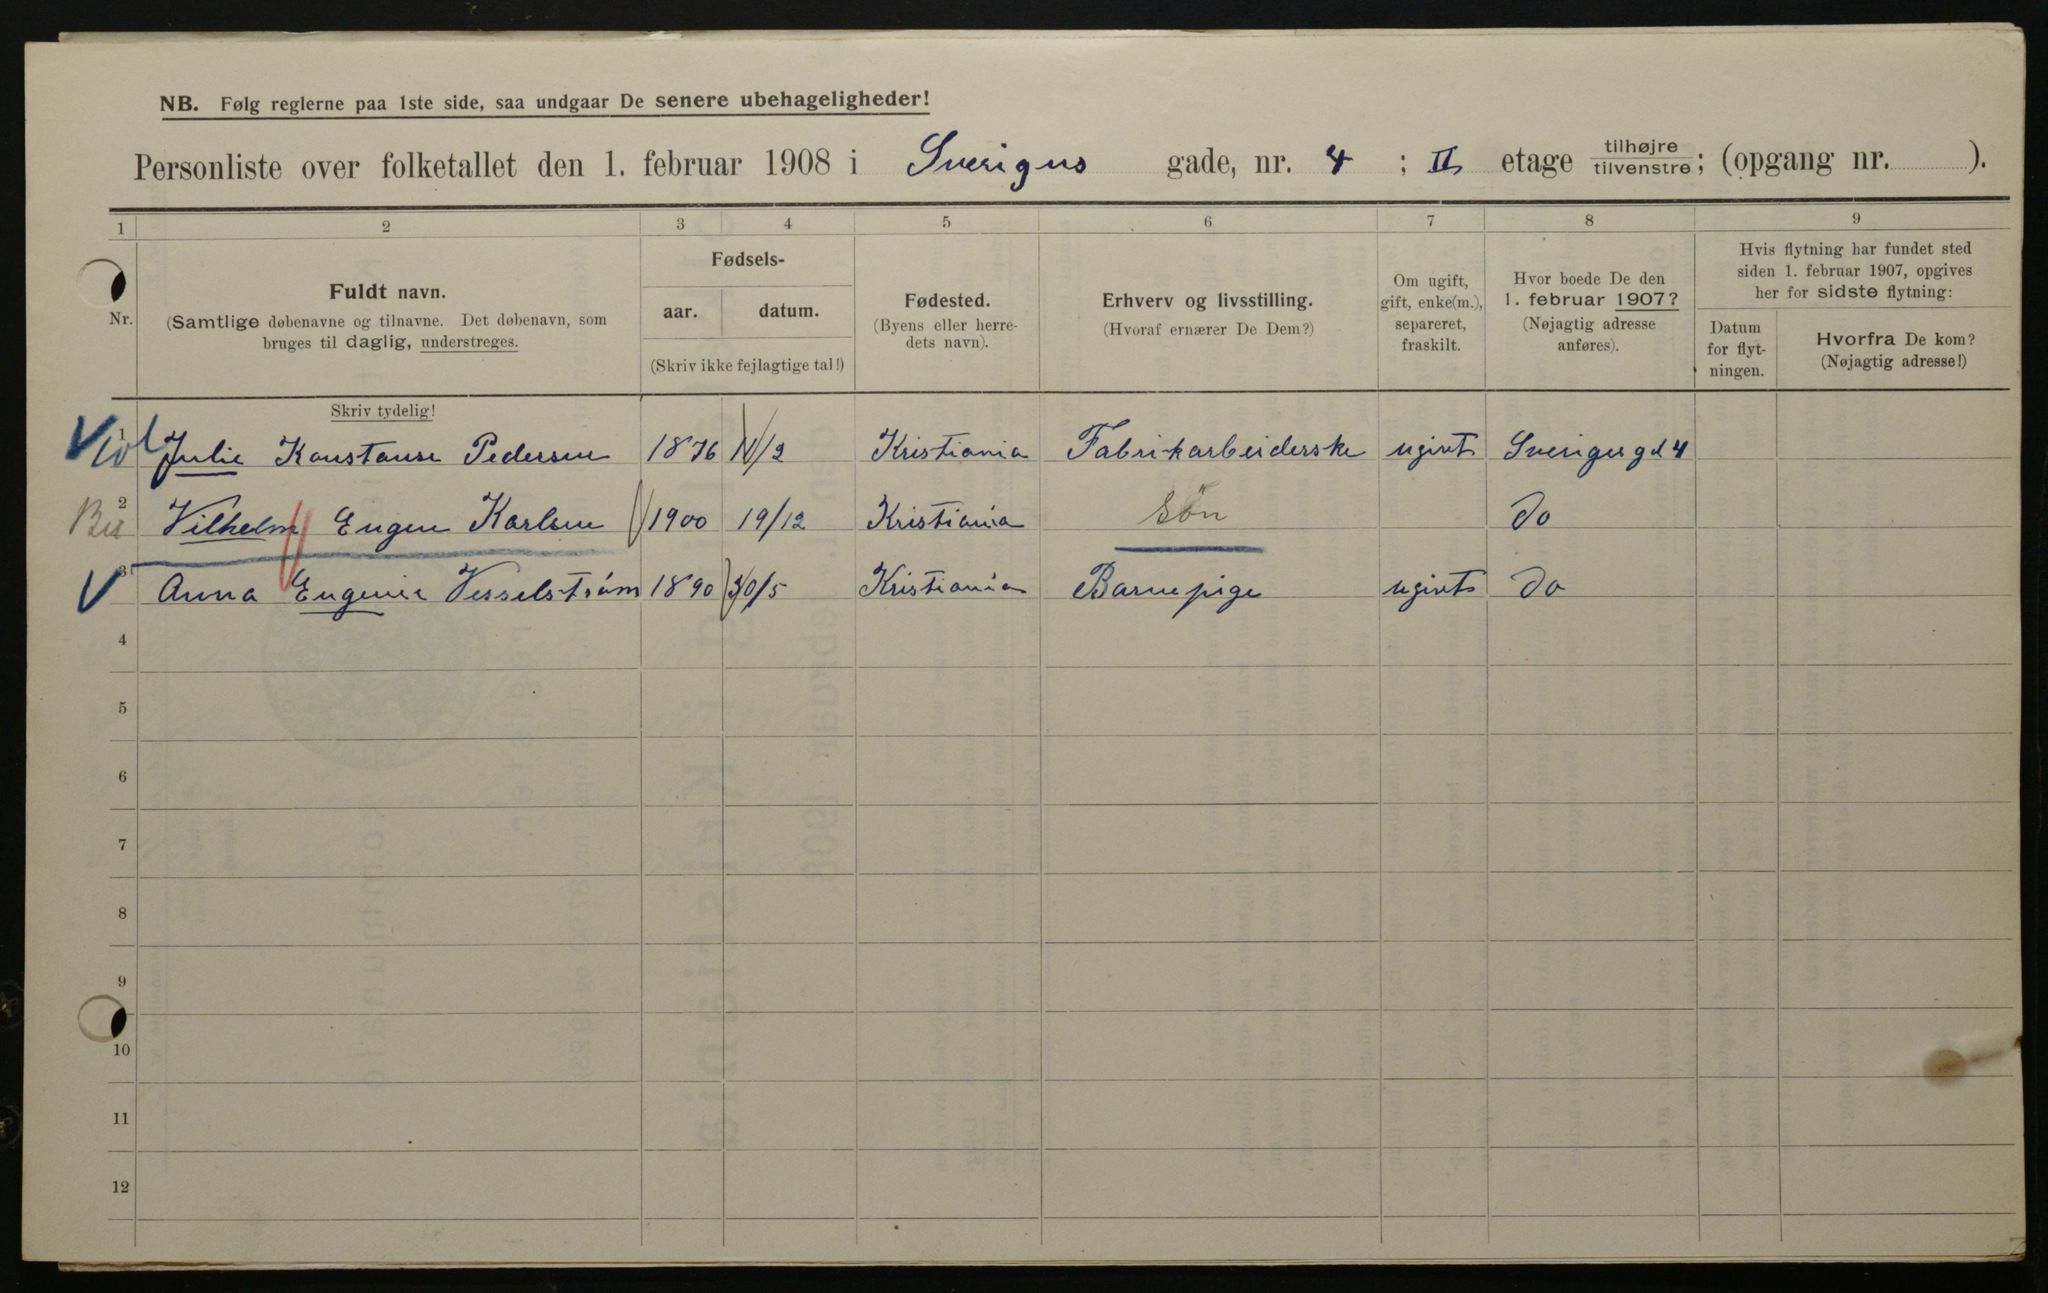 NB. Følg reglerne paa 1ste side, saa undgaar De senere ubehageligheder!
Personliste over folketallet den 1. februar 1908 i Sveriges gade, nr. 4 ; II etage tilhøjre/tilvenstre; (opgang nr. ).
1 2 3 4 5 6 7 8 9
Nr.
Fuldt navn.
(Samtlige døbenavne og tilnavne. Det døbenavn, som
bruges til daglig, understreges.
Skriv tydelig!
Fødsels-
aar. datum.
(Skriv ikke fejlagtige tal!)
Fødested.
(Byens eller herre-
dets navn).
Erhverv og livsstilling.
(Hvoraf ernærer De Dem?)
Om ugift,
gift, enke(m.),
separeret,
fraskilt.
Hvor boede De den
1. februar 1907?
(Nøjagtig adresse
anføres).
Hvis flytning har fundet sted
siden 1. februar 1907, opgives
her for sidste flytning:
Datum
for flyt-
ningen.
Hvorfra De kom?
(Nøjagtig adresse!)
1 Julie Konstanse Pedersen 1876 11/2 Kristiania Fabrikarbeiderske ugivt Sveriges gd 4
2 Vilhelm Eugen Karlsen 1900 19/12 Kristiania Søn do
3 Anna Eugenie Vesselstrøm 1890 30/5 Kristiania Barnepige ugivt do
4
5
6
7
8
9
10
11
12